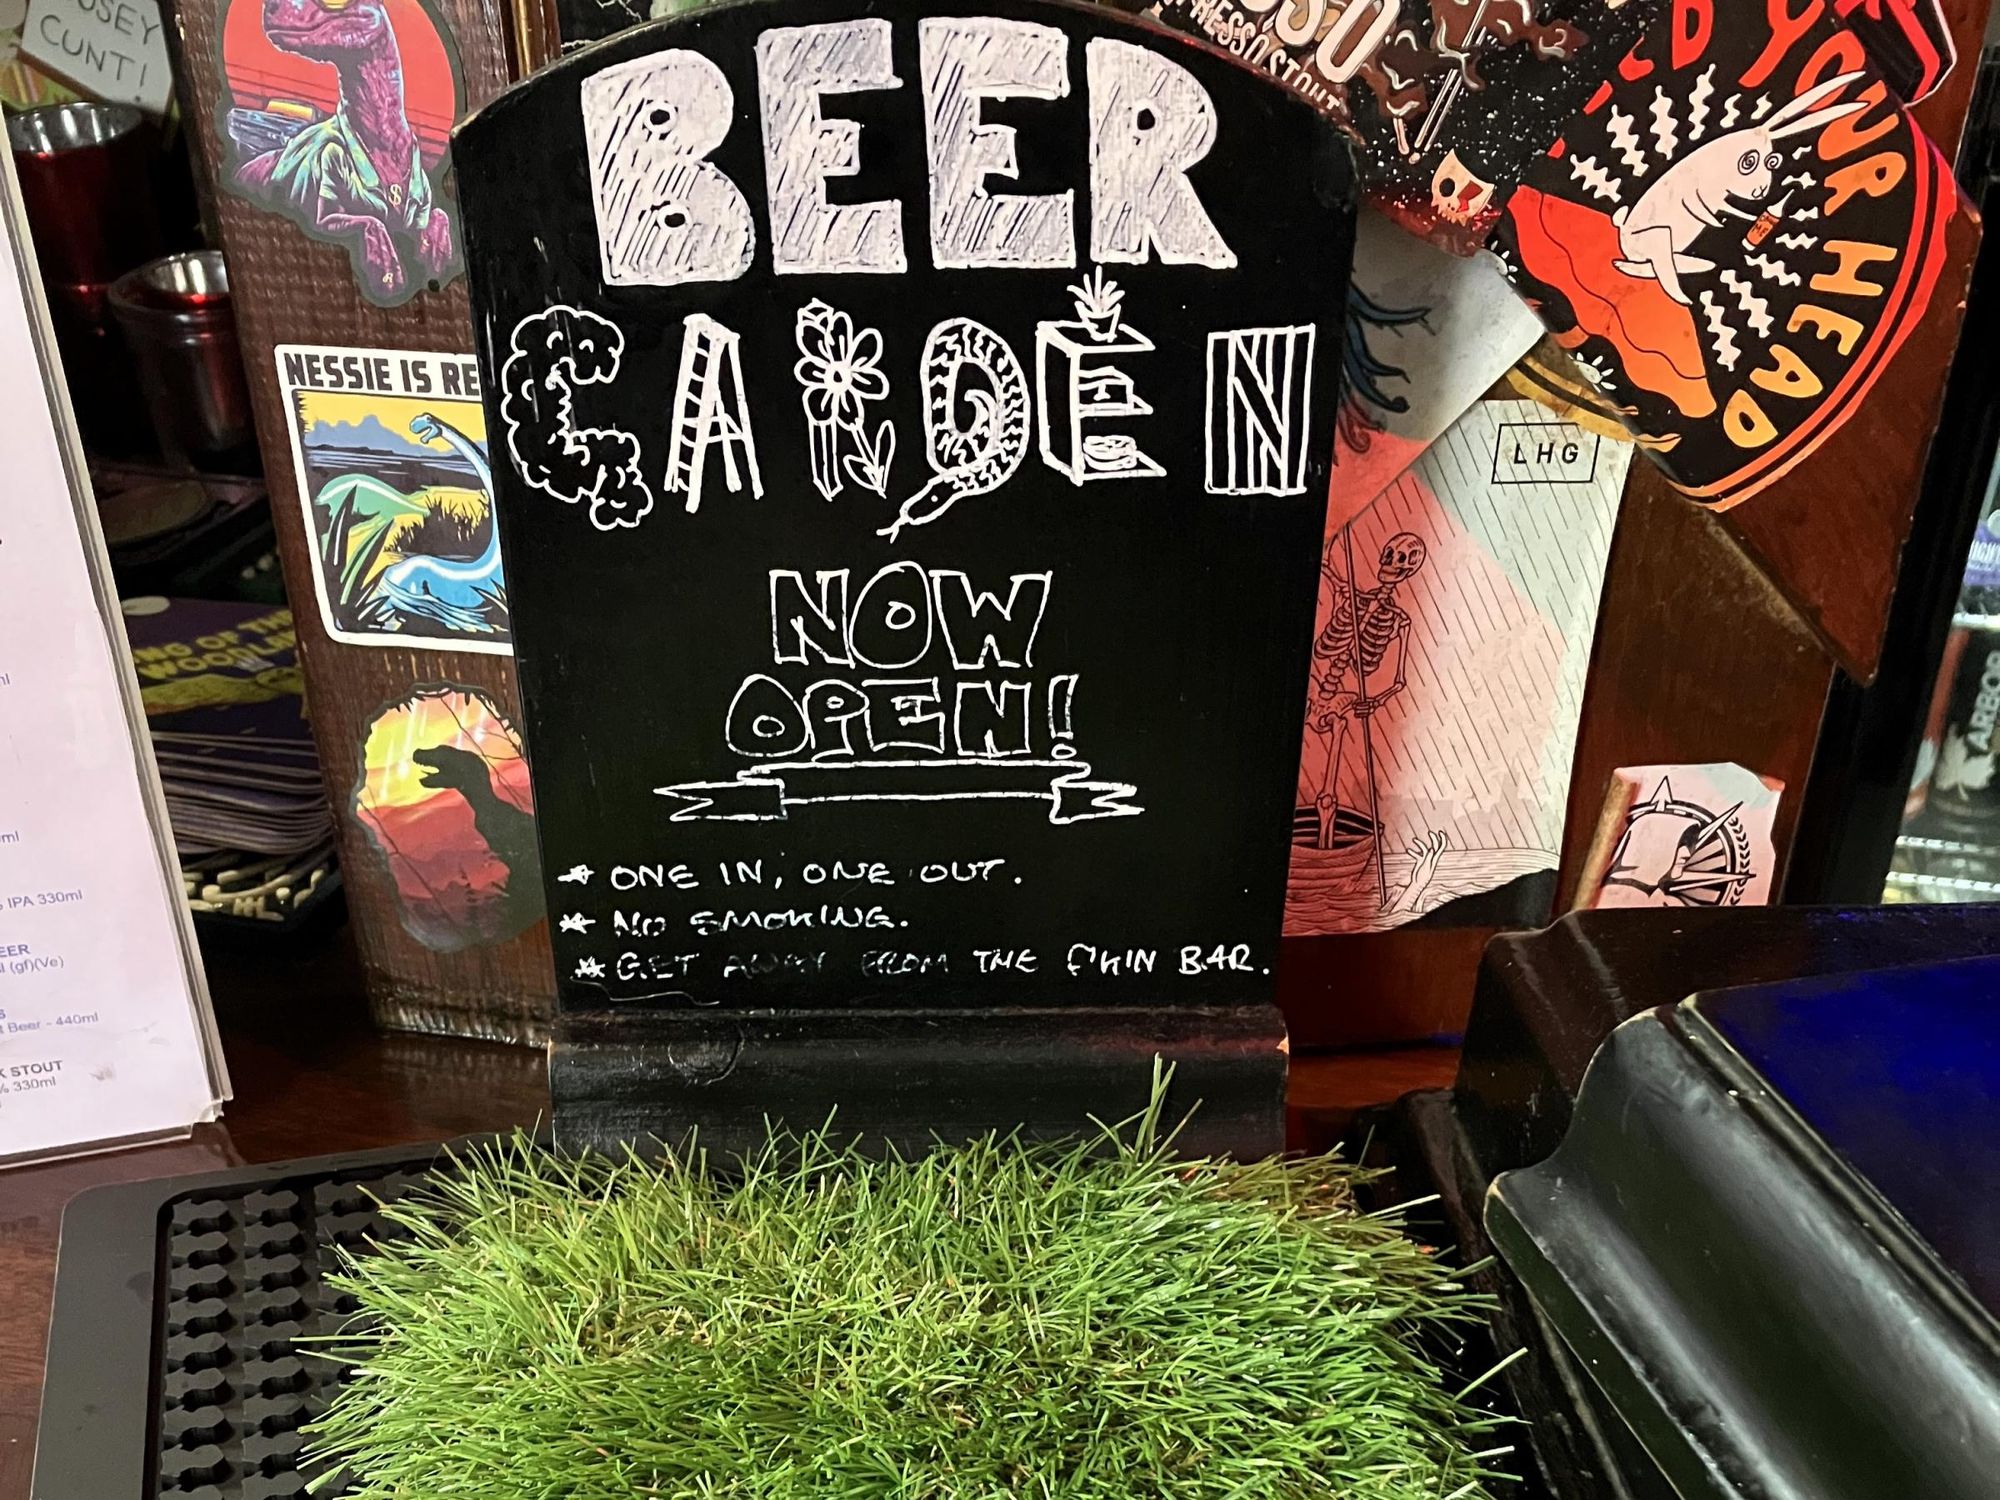 CUNT!
BEER
GARDEN
NOW
OPEN!
* ONE IN, ONE OUT.
* NO SMOKING.
* GET AWAY FROM THE F'KIN BAR.
NESSIE IS RE
WOODLAN
IPA 330ml
(gf)(Ve)
Beer - 440ml
STOUT
330ml
STOUT
YOUR HEAD
LHG
ARBOR